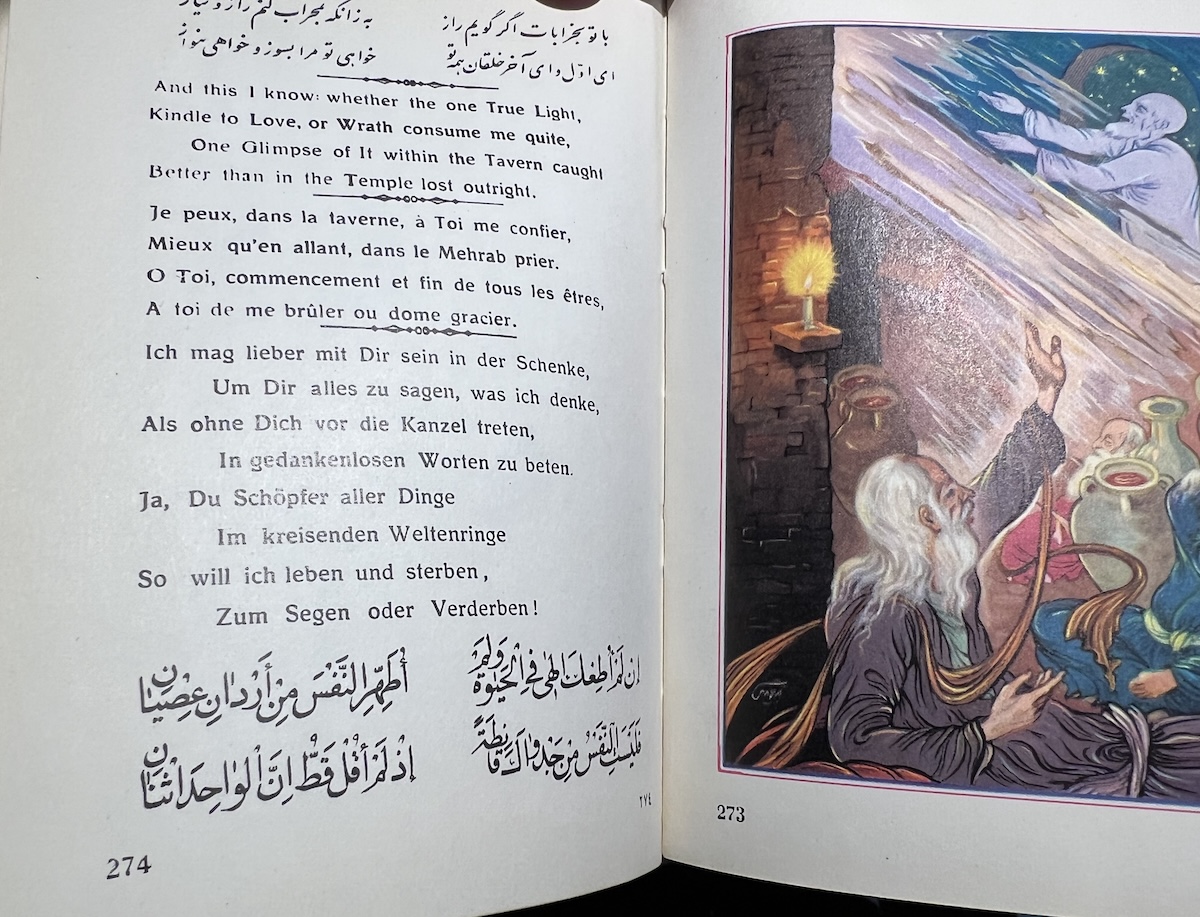 با تو بخرابات اگر گویم راز
به زانکه بمحراب کنم راز و نیاز
ای اول و ای آخر خلقان همه تو
خواهی تو مرا بسوز و خواهی بنواز
And this I know: whether the one True Light,
Kindle to Love, or Wrath consume me quite,
One Glimpse of It within the Tavern caught
Better than in the Temple lost outright.
Je peux, dans la taverne, à Toi me confier,
Mieux qu'en allant, dans le Mehrab prier.
O Toi, commencement et fin de tous les êtres,
A toi de me brûler ou dome gracier.
Ich mag lieber mit Dir sein in der Schenke,
Um Dir alles zu sagen, was ich denke,
Als ohne Dich vor die Kanzel treten,
In gedankenlosen Worten zu beten.
Ja, Du Schöpfer aller Dinge
Im kreisenden Weltenringe
So will ich leben und sterben,
Zum Segen oder Verderben!
اِن لَمْ أُطِعْكَ اِلٰهی فِی الْحَیٰوةِ وَلَمْ
أُطَهِّرِ النَّفْسَ مِنْ أَرْدٰانِ عِصْیٰانٖ
فَلَیْسَتِ النَّفْسُ مِنْ جَدْوٰاكَ قٰانِطَةً
اِذْ لَمْ أَقُلْ قَطُّ اِنَّ الْوٰاحِدَ اثْنٰانٖ
٢٧٤
274
273